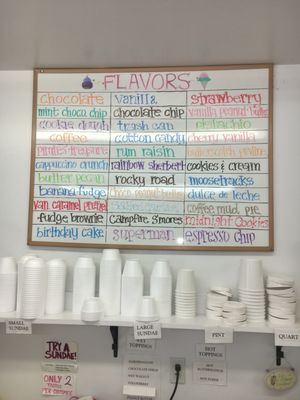 FLAVORS
chocolate vanilla strawberry
mint choco chip chocolate chip vanilla peanut butter
cookie dough trash can pistachio
coffee cotton candy cherry vanilla
pirates treasure rum raisin
cappuccino crunch rainbow sherbert cookies & cream
butter pecan rocky road moosetracks
banana fudge choco peanut butter dulce de leche
van caramel pretzel coffee mud pie
fudge brownie campfire s'mores midnight cookies
birthday cake superman espresso chip
SMALL SUNDAE
LARGE SUNDAE
PINT
QUART
TRY A SUNDAE!
ONLY 2
WET TOPPINGS
HOT TOPPINGS